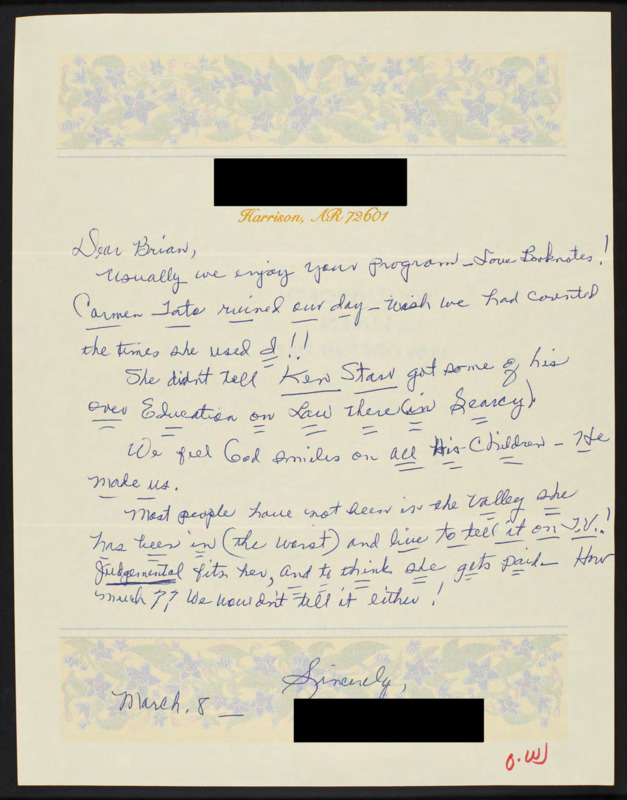 Harrison, AR 72601
Dear Brian,
Usually we enjoy your program - Love Booknotes!
Carmen Tate ruined our day - Wish we had counted
the times she used I!!
She didn't tell Ken Starr got some of his
over Education on Law there (in Searcy)
We feel God smiles on all His Children - He
made us.
Most people have not been in the valley she
has been in (the worst) and live to tell it on T.V.!
Judgemental fits her, and to think she gets paid - How
much?? We wouldn't tell it either!
Sincerely,
March. 8 -
O.W